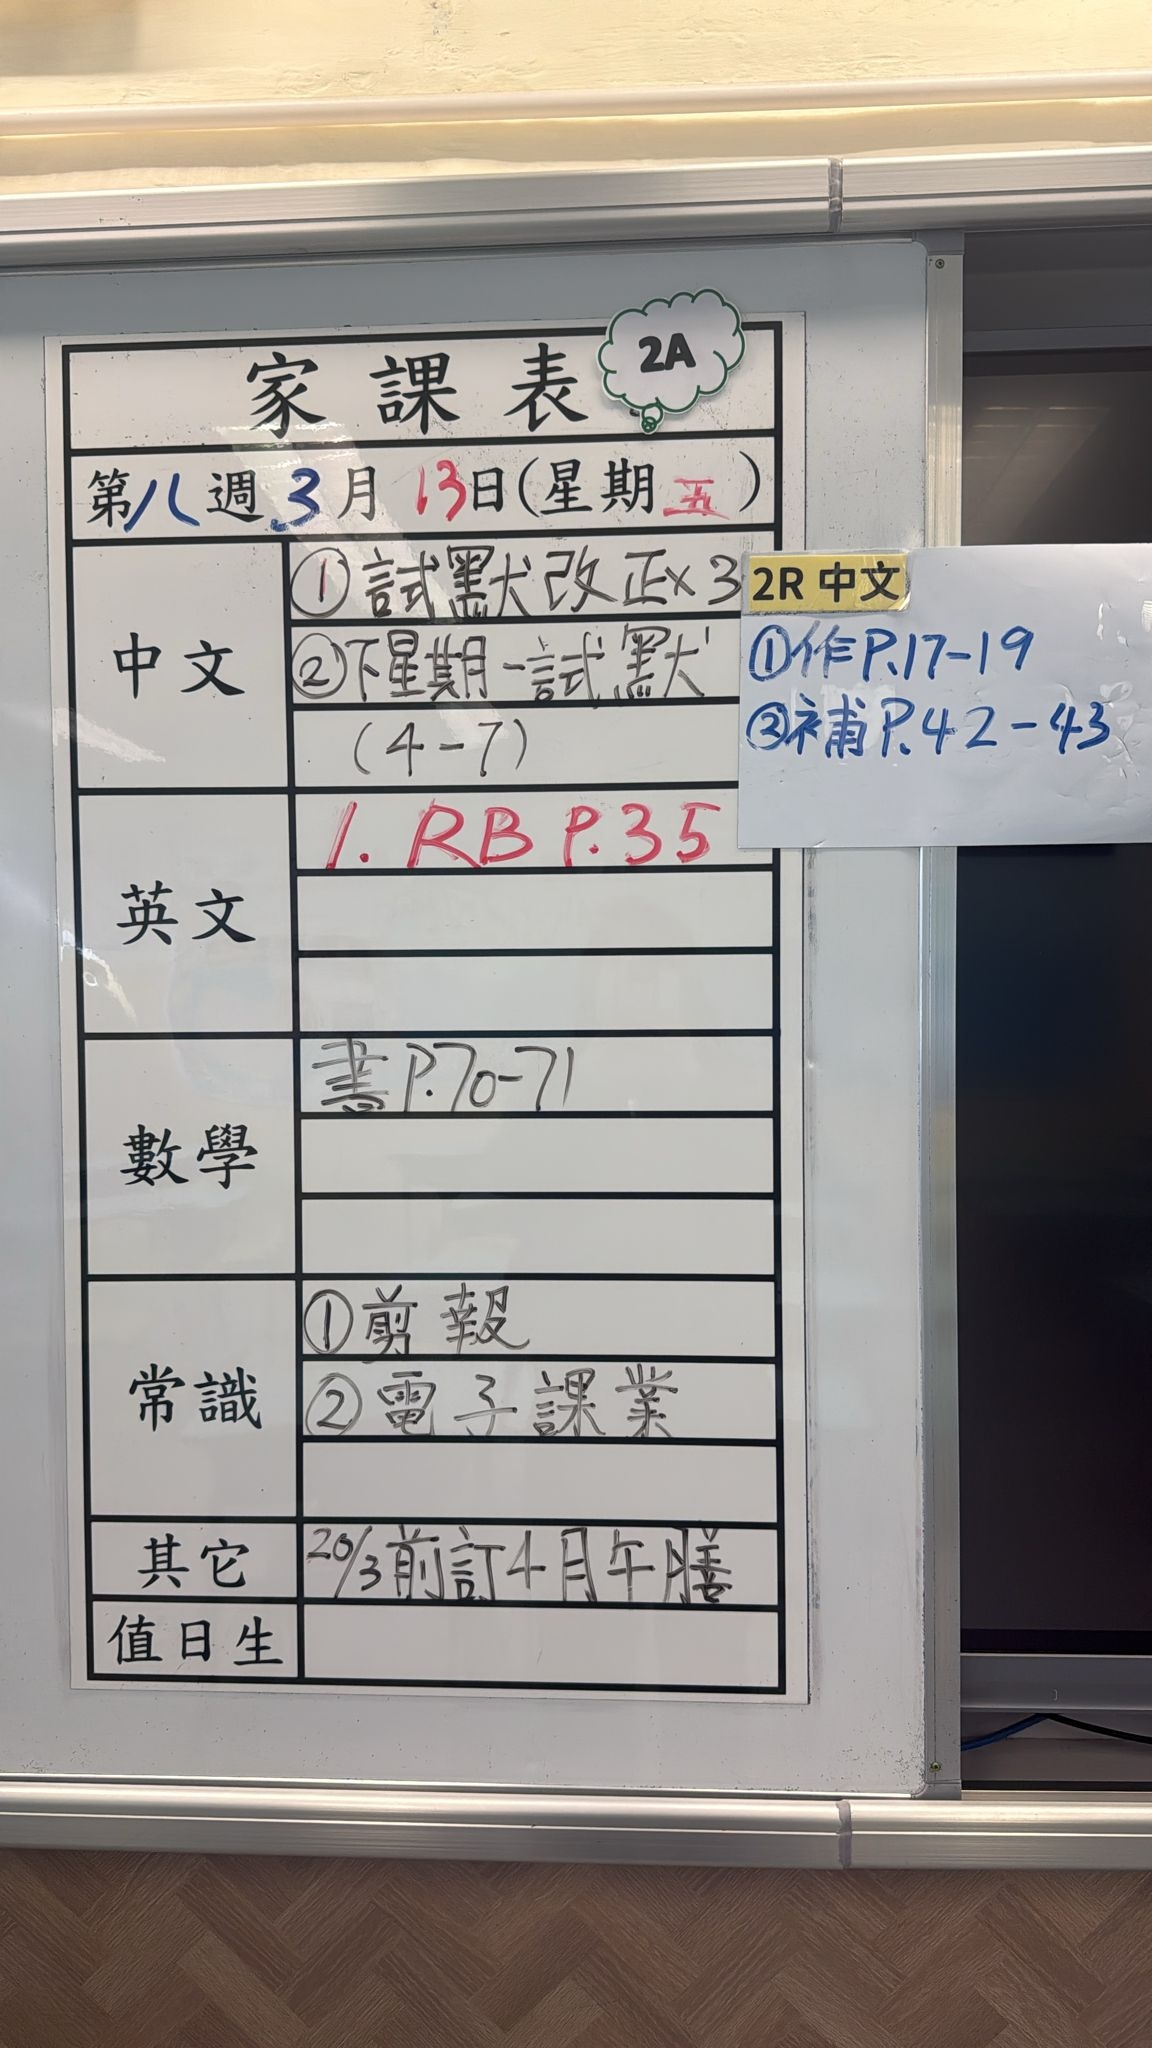 家課表
2A
第八週3月13日(星期五)
中文
①試默改正×3
②下星期一試默
(4-7)
2R 中文
①作P.17-19
②補P.42-43
英文
1. RB P.35
數學
書P.70-71
常識
①剪報
②電子課業
其它
20/3前訂4月午膳
值日生